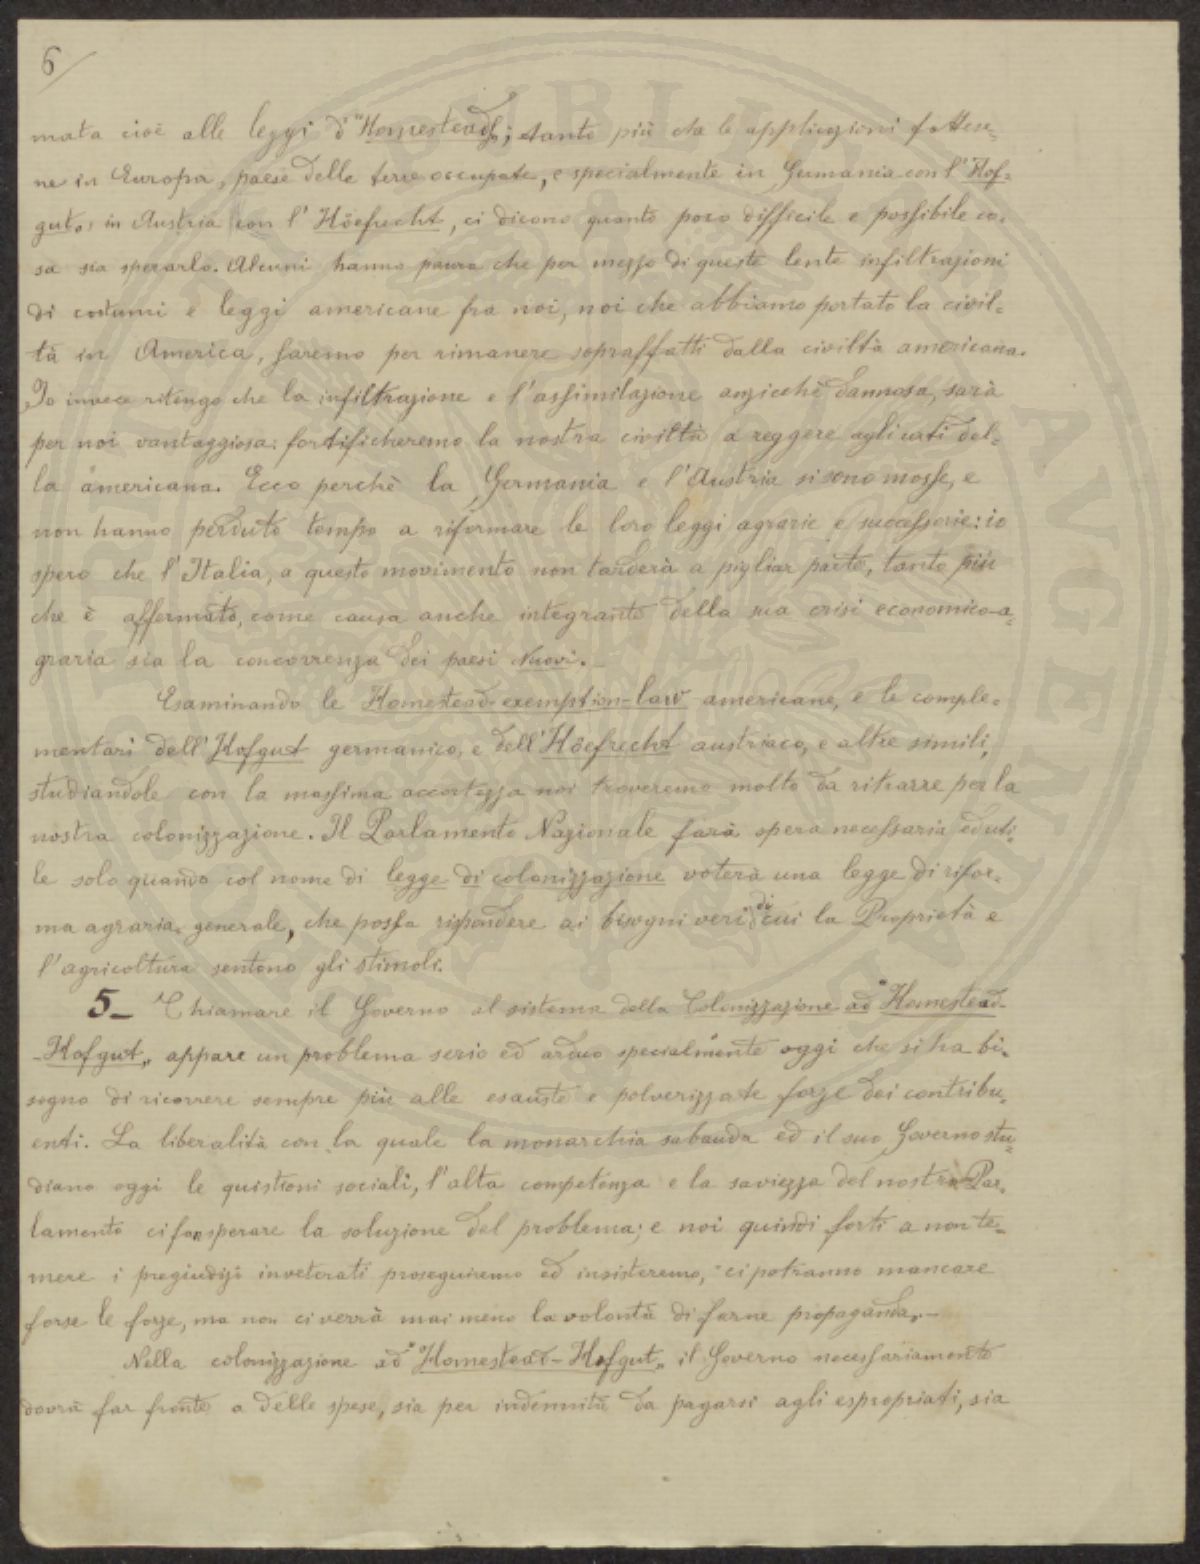 6/
mata cioè alle leggi d'"Homestead„; tanto più che le applicazioni fattese=
ne in Europa, paese delle terre occupate, e specialmente in Germania con l'Hof=
gut o, in Austria con l'Höefrecht, ci dicono quanto poco difficile e possibile co=
sa sia sperarlo. Alcuni hanno paura che per mezzo di queste lente infiltrazioni
di costumi e leggi americane fra noi, noi che abbiamo portato la civil=
tà in America, saremo per rimanere sopraffatti dalla civiltà americana.
Io invece ritengo che la infiltrazione e l'assimilazione anzicchè dannosa, sarà
per noi vantaggiosa: fortificheremo la nostra civiltà a reggere agli urti del=
la americana. Ecco perchè la Germania e l'Austria si sono mosse, e
non hanno perduto tempo a riformare le loro leggi agrarie e successorie: io
spero che l'Italia, a questo movimento non tarderà a pigliar parte, tanto più
che è affermato, come causa anche integrante della sua crisi economico-a=
graria sia la concorrenza dei paesi Nuovi.—
Esaminando le Homestead-exemption-law americane, e le comple=
mentari dell'Hofgut germanico, e dell'Höefrecht austriaco, e altre simili,
studiandole con la massima accortezza noi troveremo molto da ritrarre per la
nostra colonizzazione. Il Parlamento Nazionale farà opera necessaria ed uti=
le solo quando col nome di legge di colonizzazione voterà una legge di rifor=
ma agraria generale, che possa rispondere ai bisogni veri di cui la Proprietà e
l'agricoltura sentono gli stimoli.
5— Chiamare il Governo al sistema della Colonizzazione ad "Homestead-
-Hofgut„ appare un problema serio ed arduo specialmente oggi che si ha bi=
sogno di ricorrere sempre più alle esauste e polverizzate forze dei contribu=
enti. La liberalità con la quale la monarchia sabauda ed il suo Governo stu=
diano oggi le quistioni sociali, l'alta competenza e la saviezza del nostro Par=
lamento ci fan sperare la soluzione del problema; e noi quindi forti a non te=
mere i pregiudizî inveterati proseguiremo ed insisteremo, ci potranno mancare
forse le forze, ma non ci verrà mai meno la volontà di farne propaganda.—
Nella colonizzazione ad "Homestead-Hofgut„ il Governo necessariamente
dovrà far fronte a delle spese, sia per indennità da pagarsi agli espropriati, sia